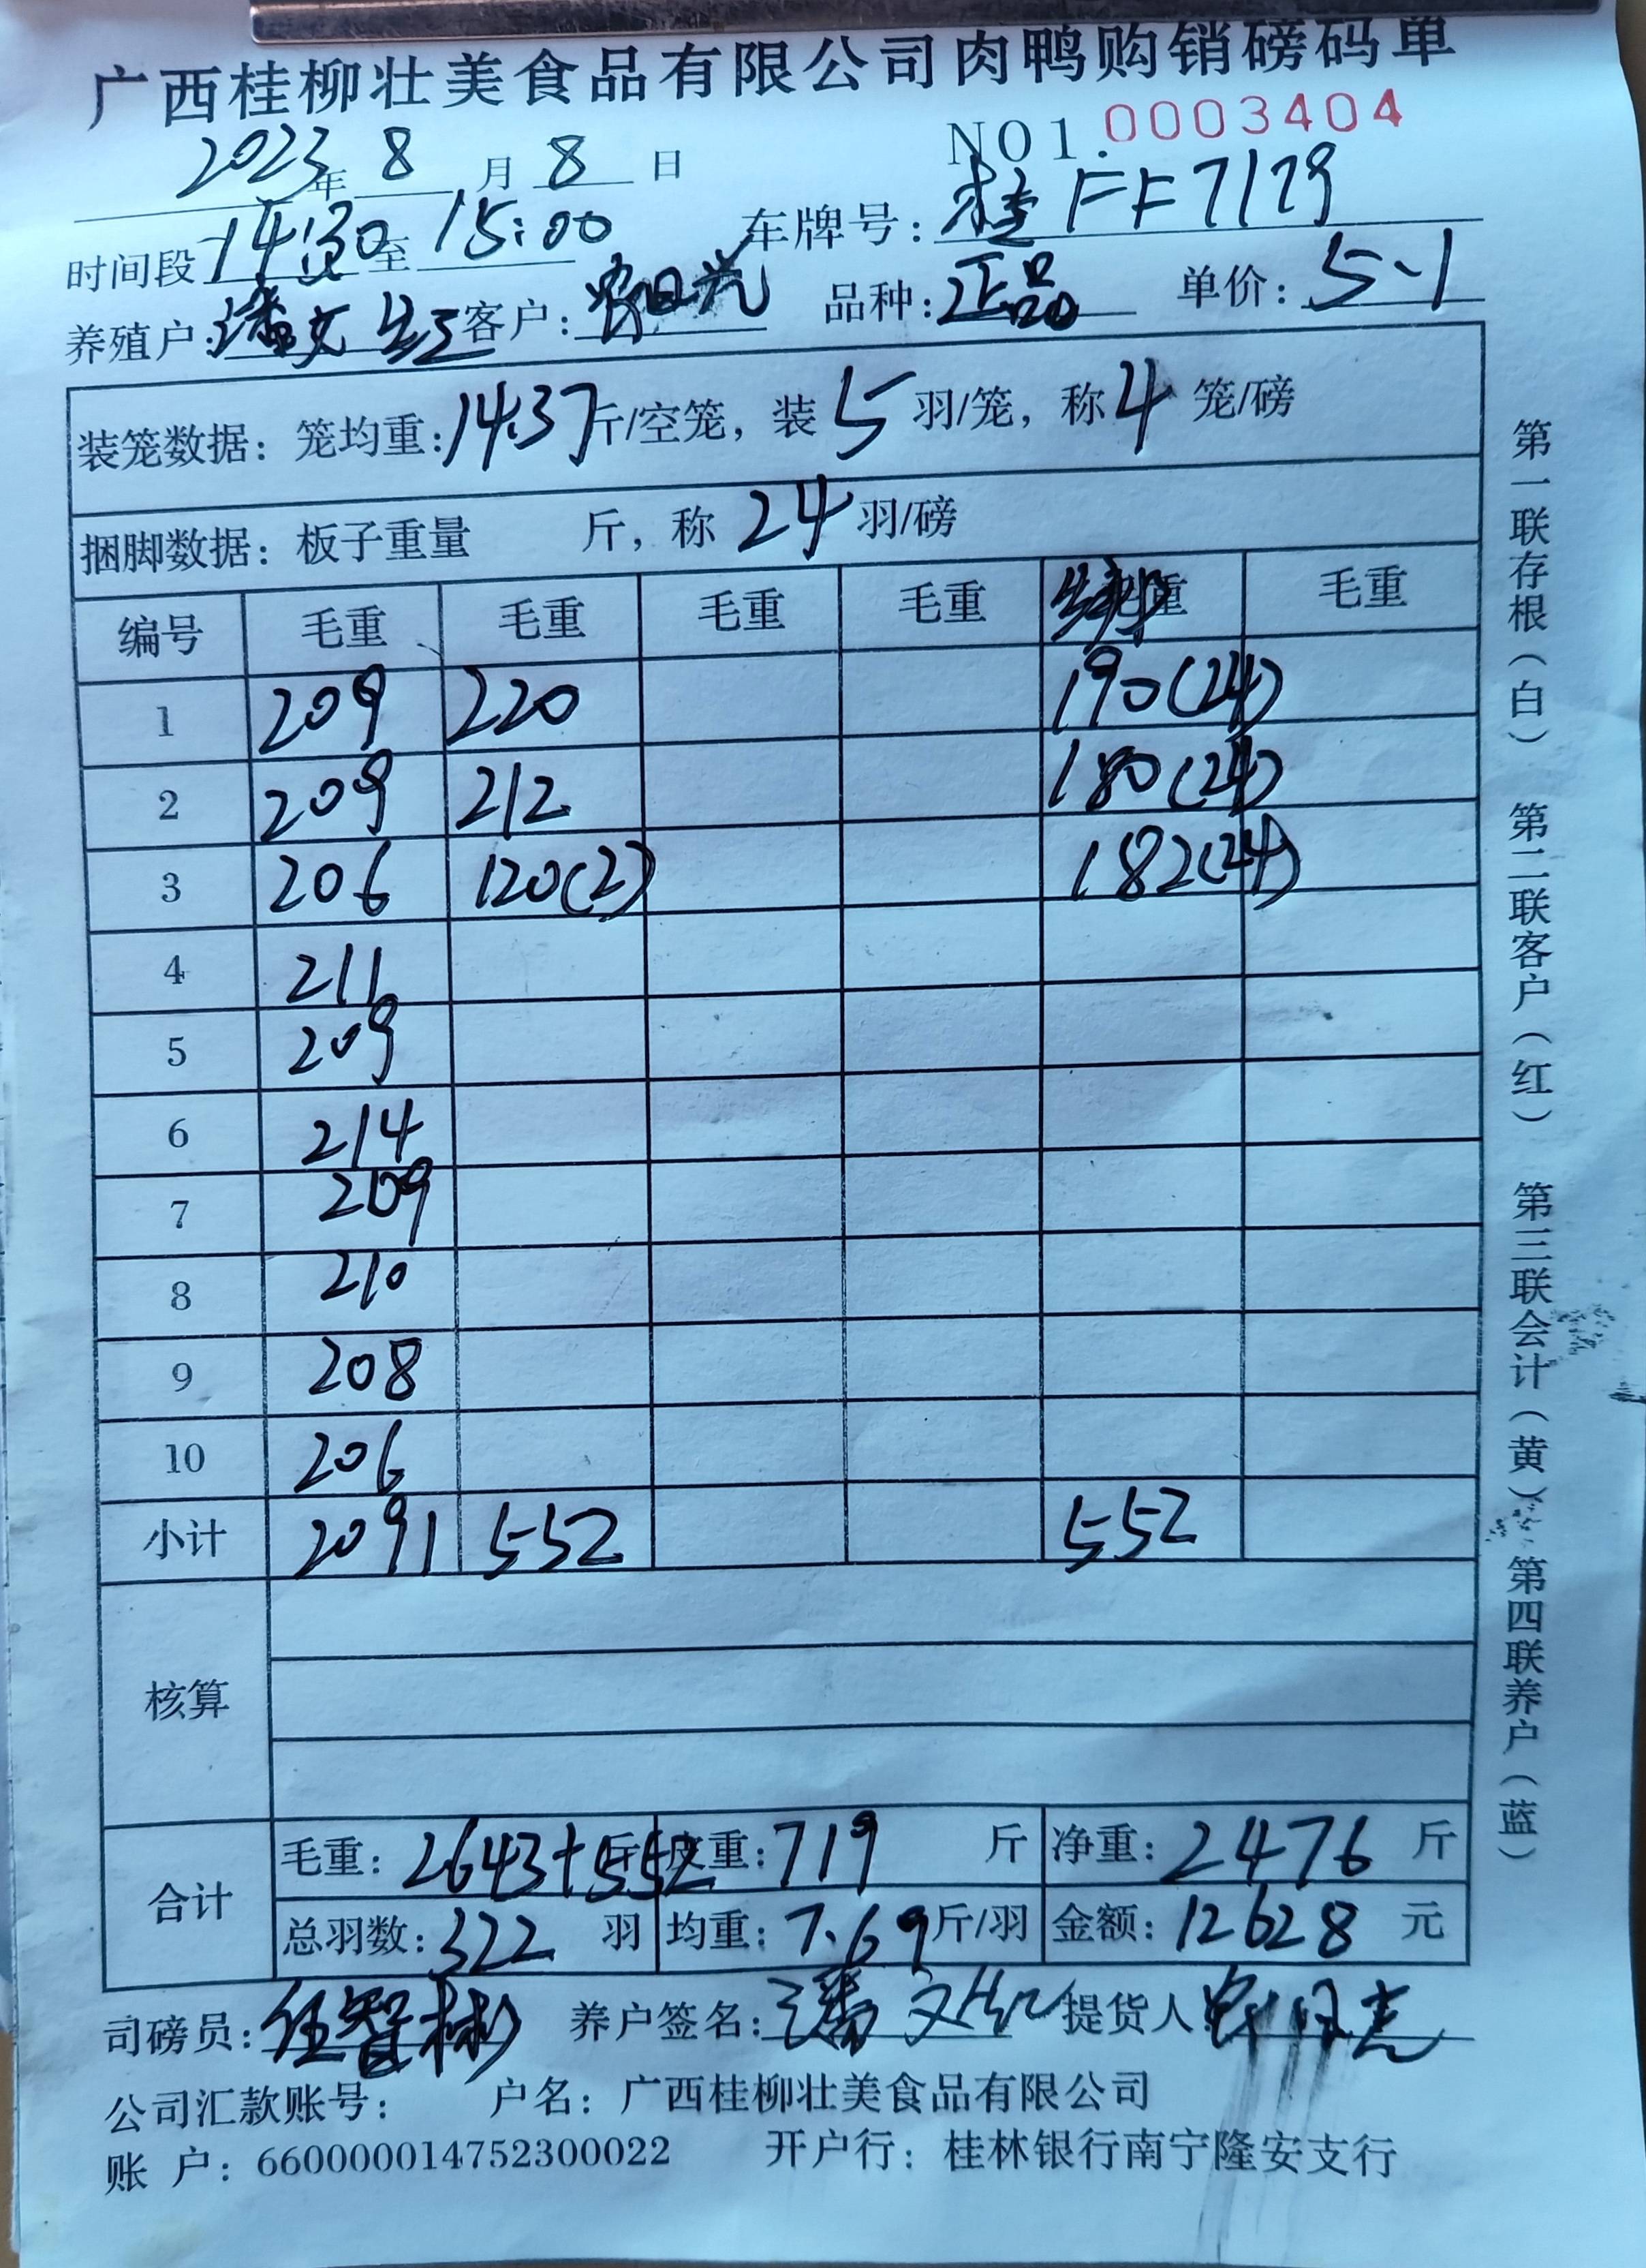 广西桂柳壮美食品有限公司肉鸭购销磅码单
2023年 8 月 8 日 NO1.0003404
时间段 14:30 至 15:00 车牌号: 桂FF7179
养殖户: 潘文 客户: 品种: 正品 单价: 5.1
装笼数据: 笼均重: 14.37 斤/空笼, 装 5 羽/笼, 称 4 笼/磅
捆脚数据: 板子重量 斤, 称 24 羽/磅
编号 毛重 毛重 毛重 毛重 毛重 毛重
1 209 220 190(24)
2 209 212 180(24)
3 206 120(2) 182(24)
4 211
5 209
6 214
7 209
8 210
9 208
10 206
小计 2091 552 552
核算
合计
毛重: 2643+552 斤 皮重: 719 斤 净重: 2476 斤
总羽数: 322 羽 均重: 7.69 斤/羽 金额: 12628 元
司磅员: 任智彬 养户签名: 潘文 提货人:
公司汇款账号: 户名: 广西桂柳壮美食品有限公司
账 户: 660000014752300022 开户行: 桂林银行南宁隆安支行
第一联存根(白) 第二联客户(红) 第三联会计(黄) 第四联养户(蓝)